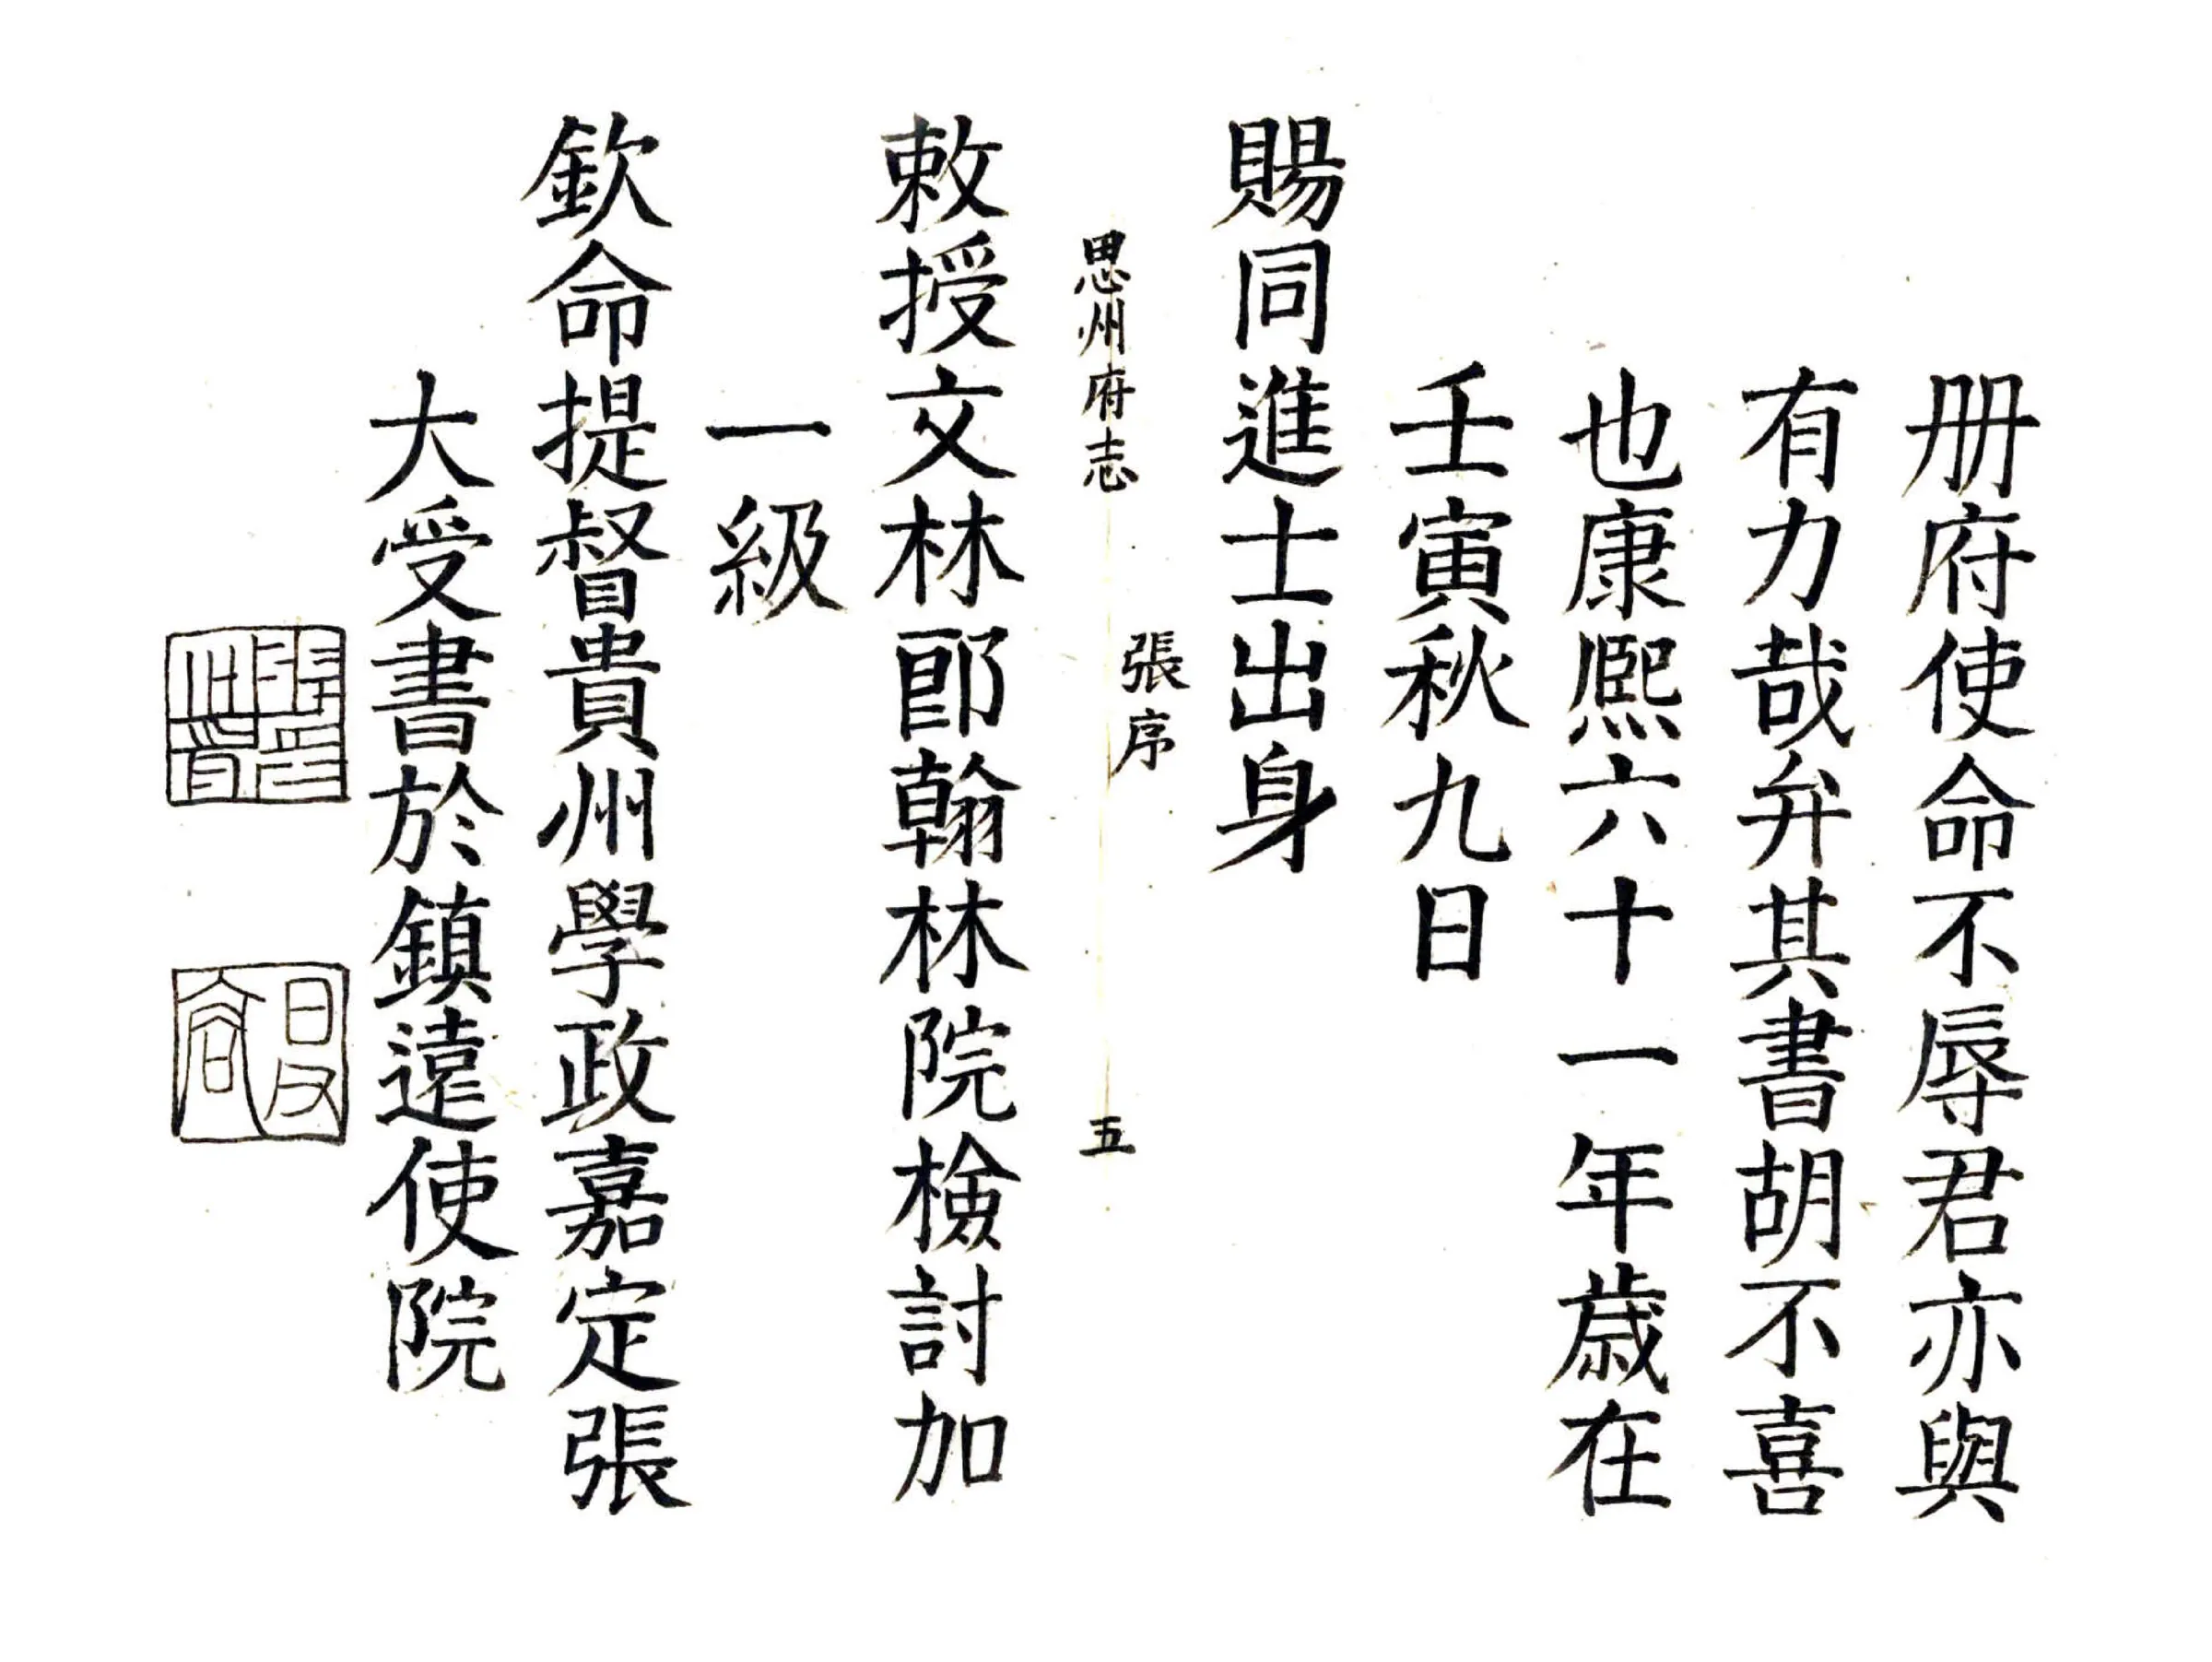 册府使命不辱君亦與
有力哉弁其書胡不喜
也康熈六十一年歲在
壬寅秋九日
賜同進士出身
思州府志
張序
五
敕授文林郎翰林院檢討加
一級
欽命提督貴州學政嘉定張
大受書於鎮遠使院
日容